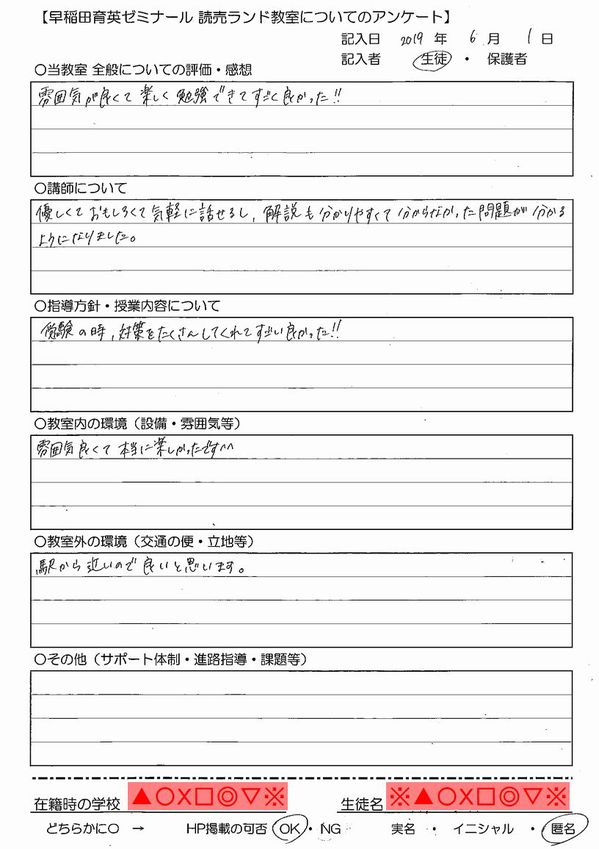 【早稲田育英ゼミナール 読売ランド教室についてのアンケート】
記入日 2019 年 6 月 1 日
記入者 生徒 ・ 保護者
○当教室 全般についての評価・感想
雰囲気が良くて楽しく勉強できてすごく良かった!!
○講師について
優しくておもしろくて気軽に話せるし、解説も分かりやすくて分からなかった問題が分かる
ようになりました。
○指導方針・授業内容について
受験の時、対策をたくさんしてくれてすごい良かった!!
○教室内の環境（設備・雰囲気等）
雰囲気良くて本当に楽しかったです^^
○教室外の環境（交通の便・立地等）
駅から近いので良いと思います。
○その他（サポート体制・進路指導・課題等）
在籍時の学校 ▲○X□◎▽※ 生徒名 ※▲○X□◎▽※
どちらかに○ → HP掲載の可否 OK・NG 実名 ・ イニシャル ・ 匿名